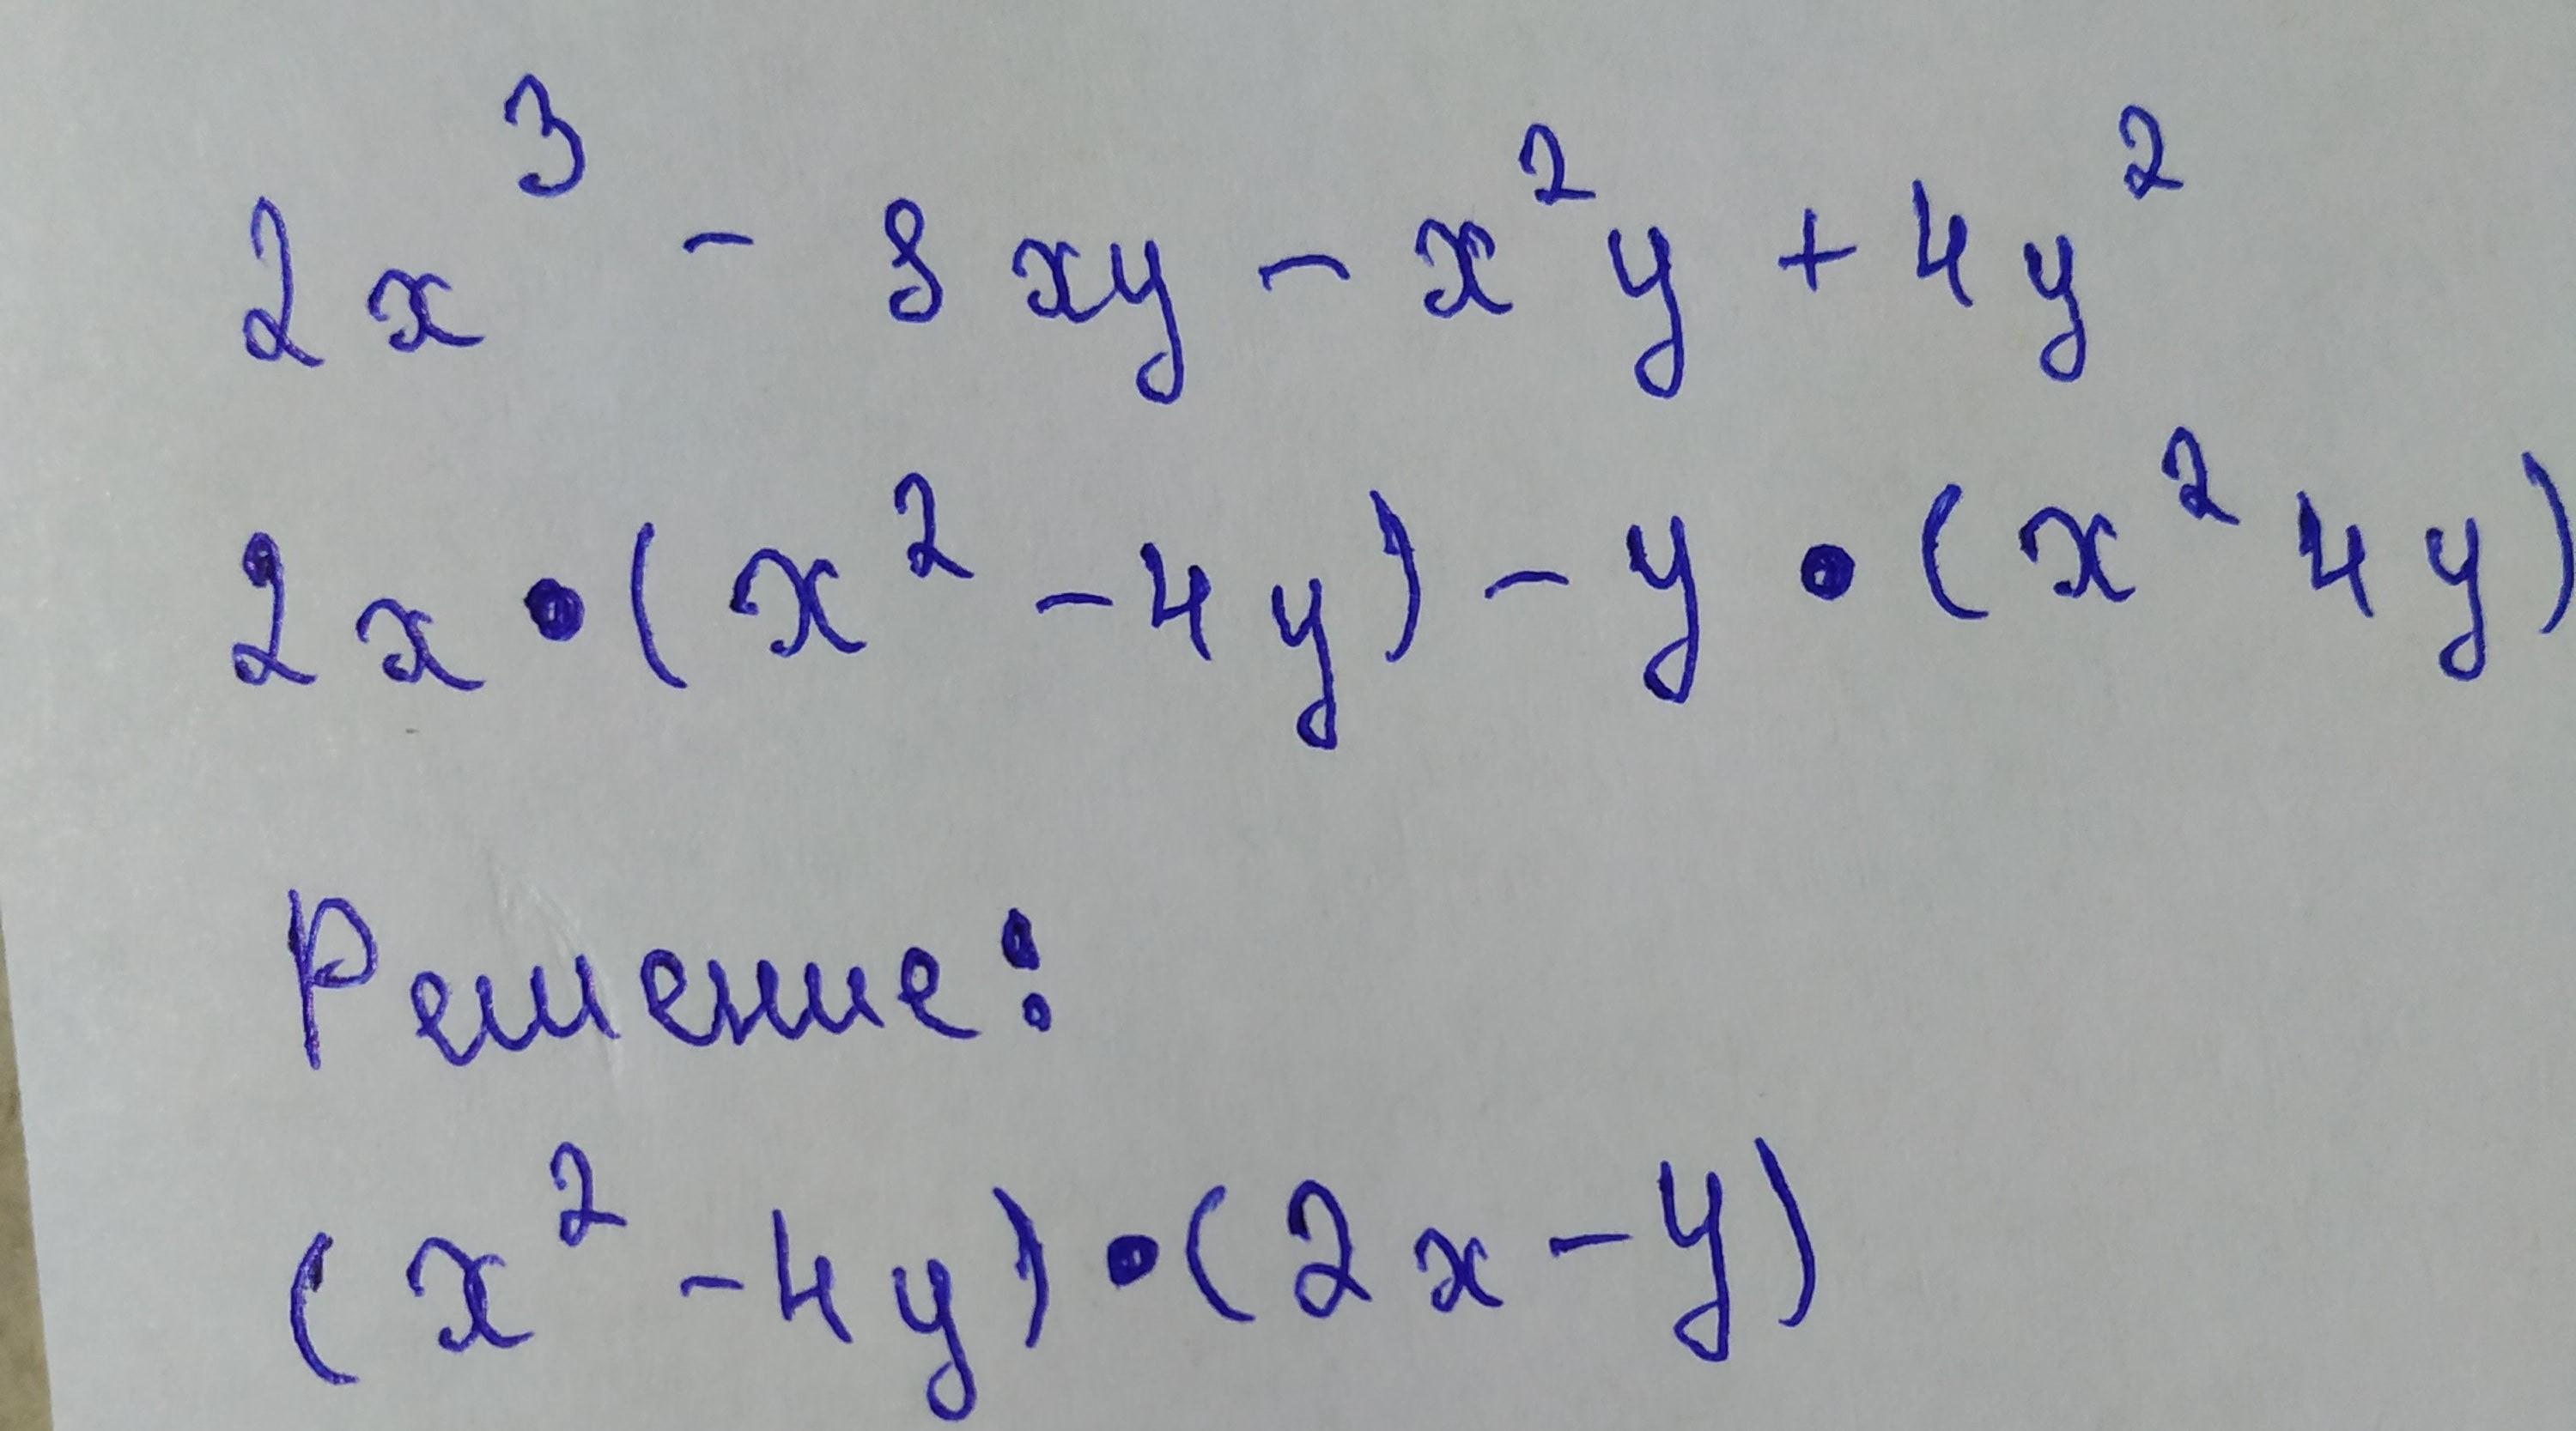 2x³ - 8xy - x²y + 4y²
2x • (x² - 4y) - y • (x² 4y)
Решение:
(x² - 4y) • (2x - y)